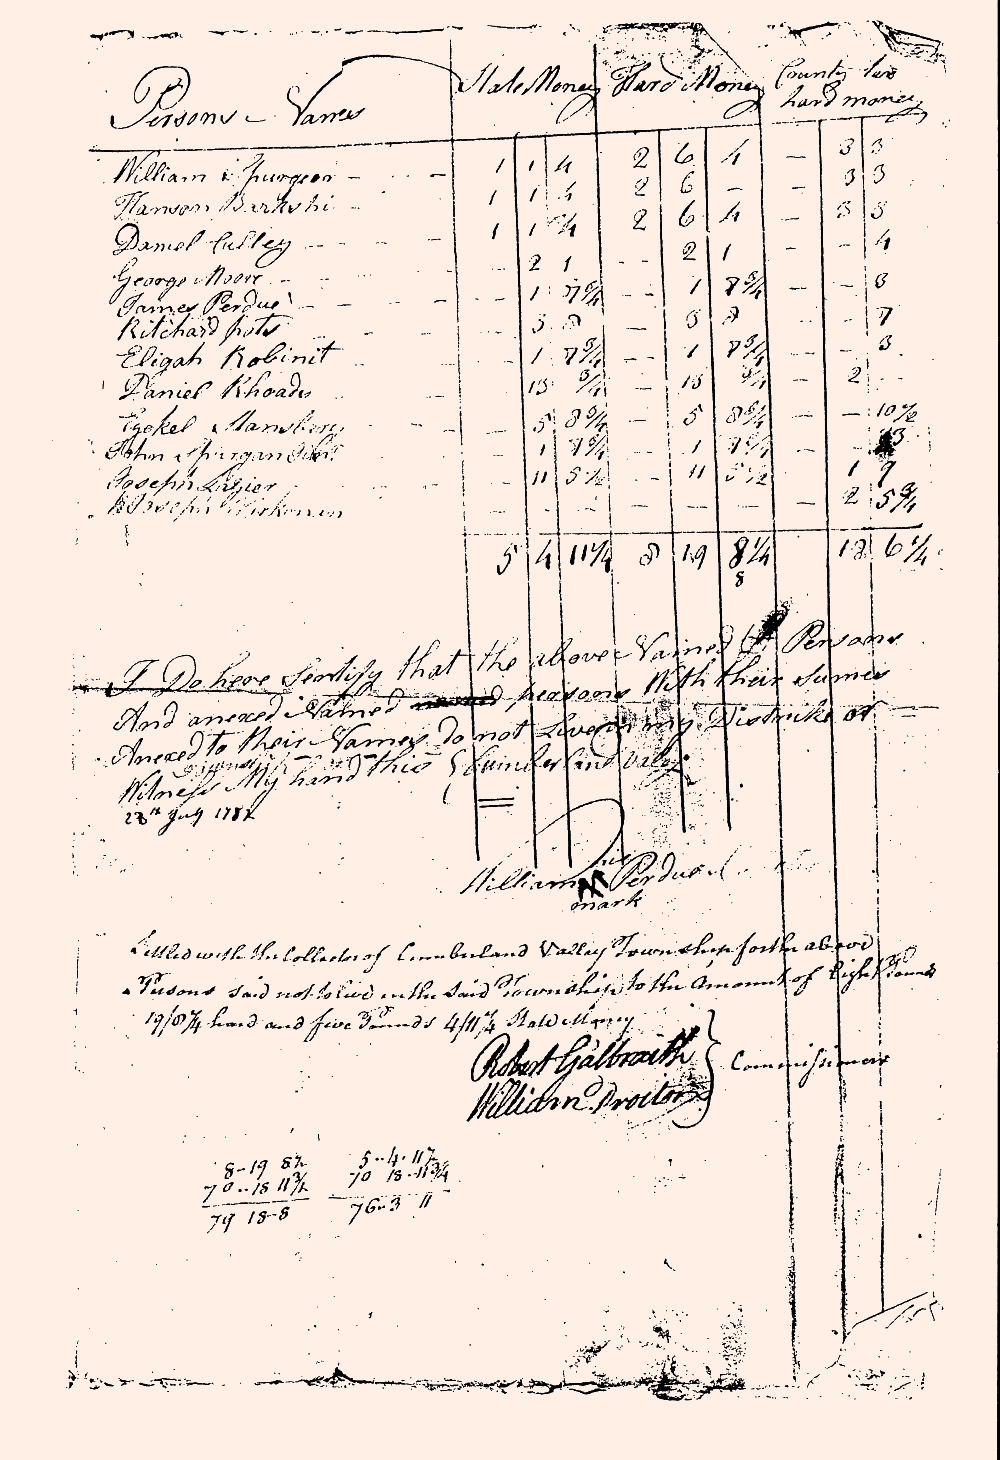 Persons Names State Money Hard Money County tax
hard money
William Spurgeon 1 1 4 2 6 4 — 3 3
Hanson 1 1 4 2 6 — — 3 3
Daniel Culley 1 1 4 2 6 4 — 3 3
George Moore 2 1 2 1 — — 4
James Perdue 1 7 3/4 1 7 3/4 — — 3
Ritchard pots 3 — 3 — — 7
Eligah Robinit 1 7 3/4 1 7 3/4 — — 3
Daniel Rhoads 13 3/4 13 3/4 — 2
Ezekel Mansberry 5 8 3/4 5 8 3/4 — — 10 1/2
John Spurgan 1 7 3/4 1 7 3/4 — 3
Joseph Lazier 11 5 1/2 11 5 1/2 1 9
Joseph — — — — — — 2 5 3/4
5 4 11 1/4 8 19 8 1/4 12 6 1/4
8
I Do here Sertify that the above Named Persons
And anexed Named persons With their sumes
Anexed to their Names do not Live in my Distrike of
Witness My hand this Cumberland Valey
28th July 1787
his
William Perdue
mark
Settled with the Collector of Cumberland Valley Township for the above
Persons said not to live in the said Township to the Amount of Eight Pounds
19/8 1/4 hard and five Pounds 4/11 1/4 State Money
Robert Galbraith
William Proctor Commissioners
8--19 8 1/2 5--4-11 1/2
70--18 11 3/4 70 18-11 3/4
79 18-8 76-3 11